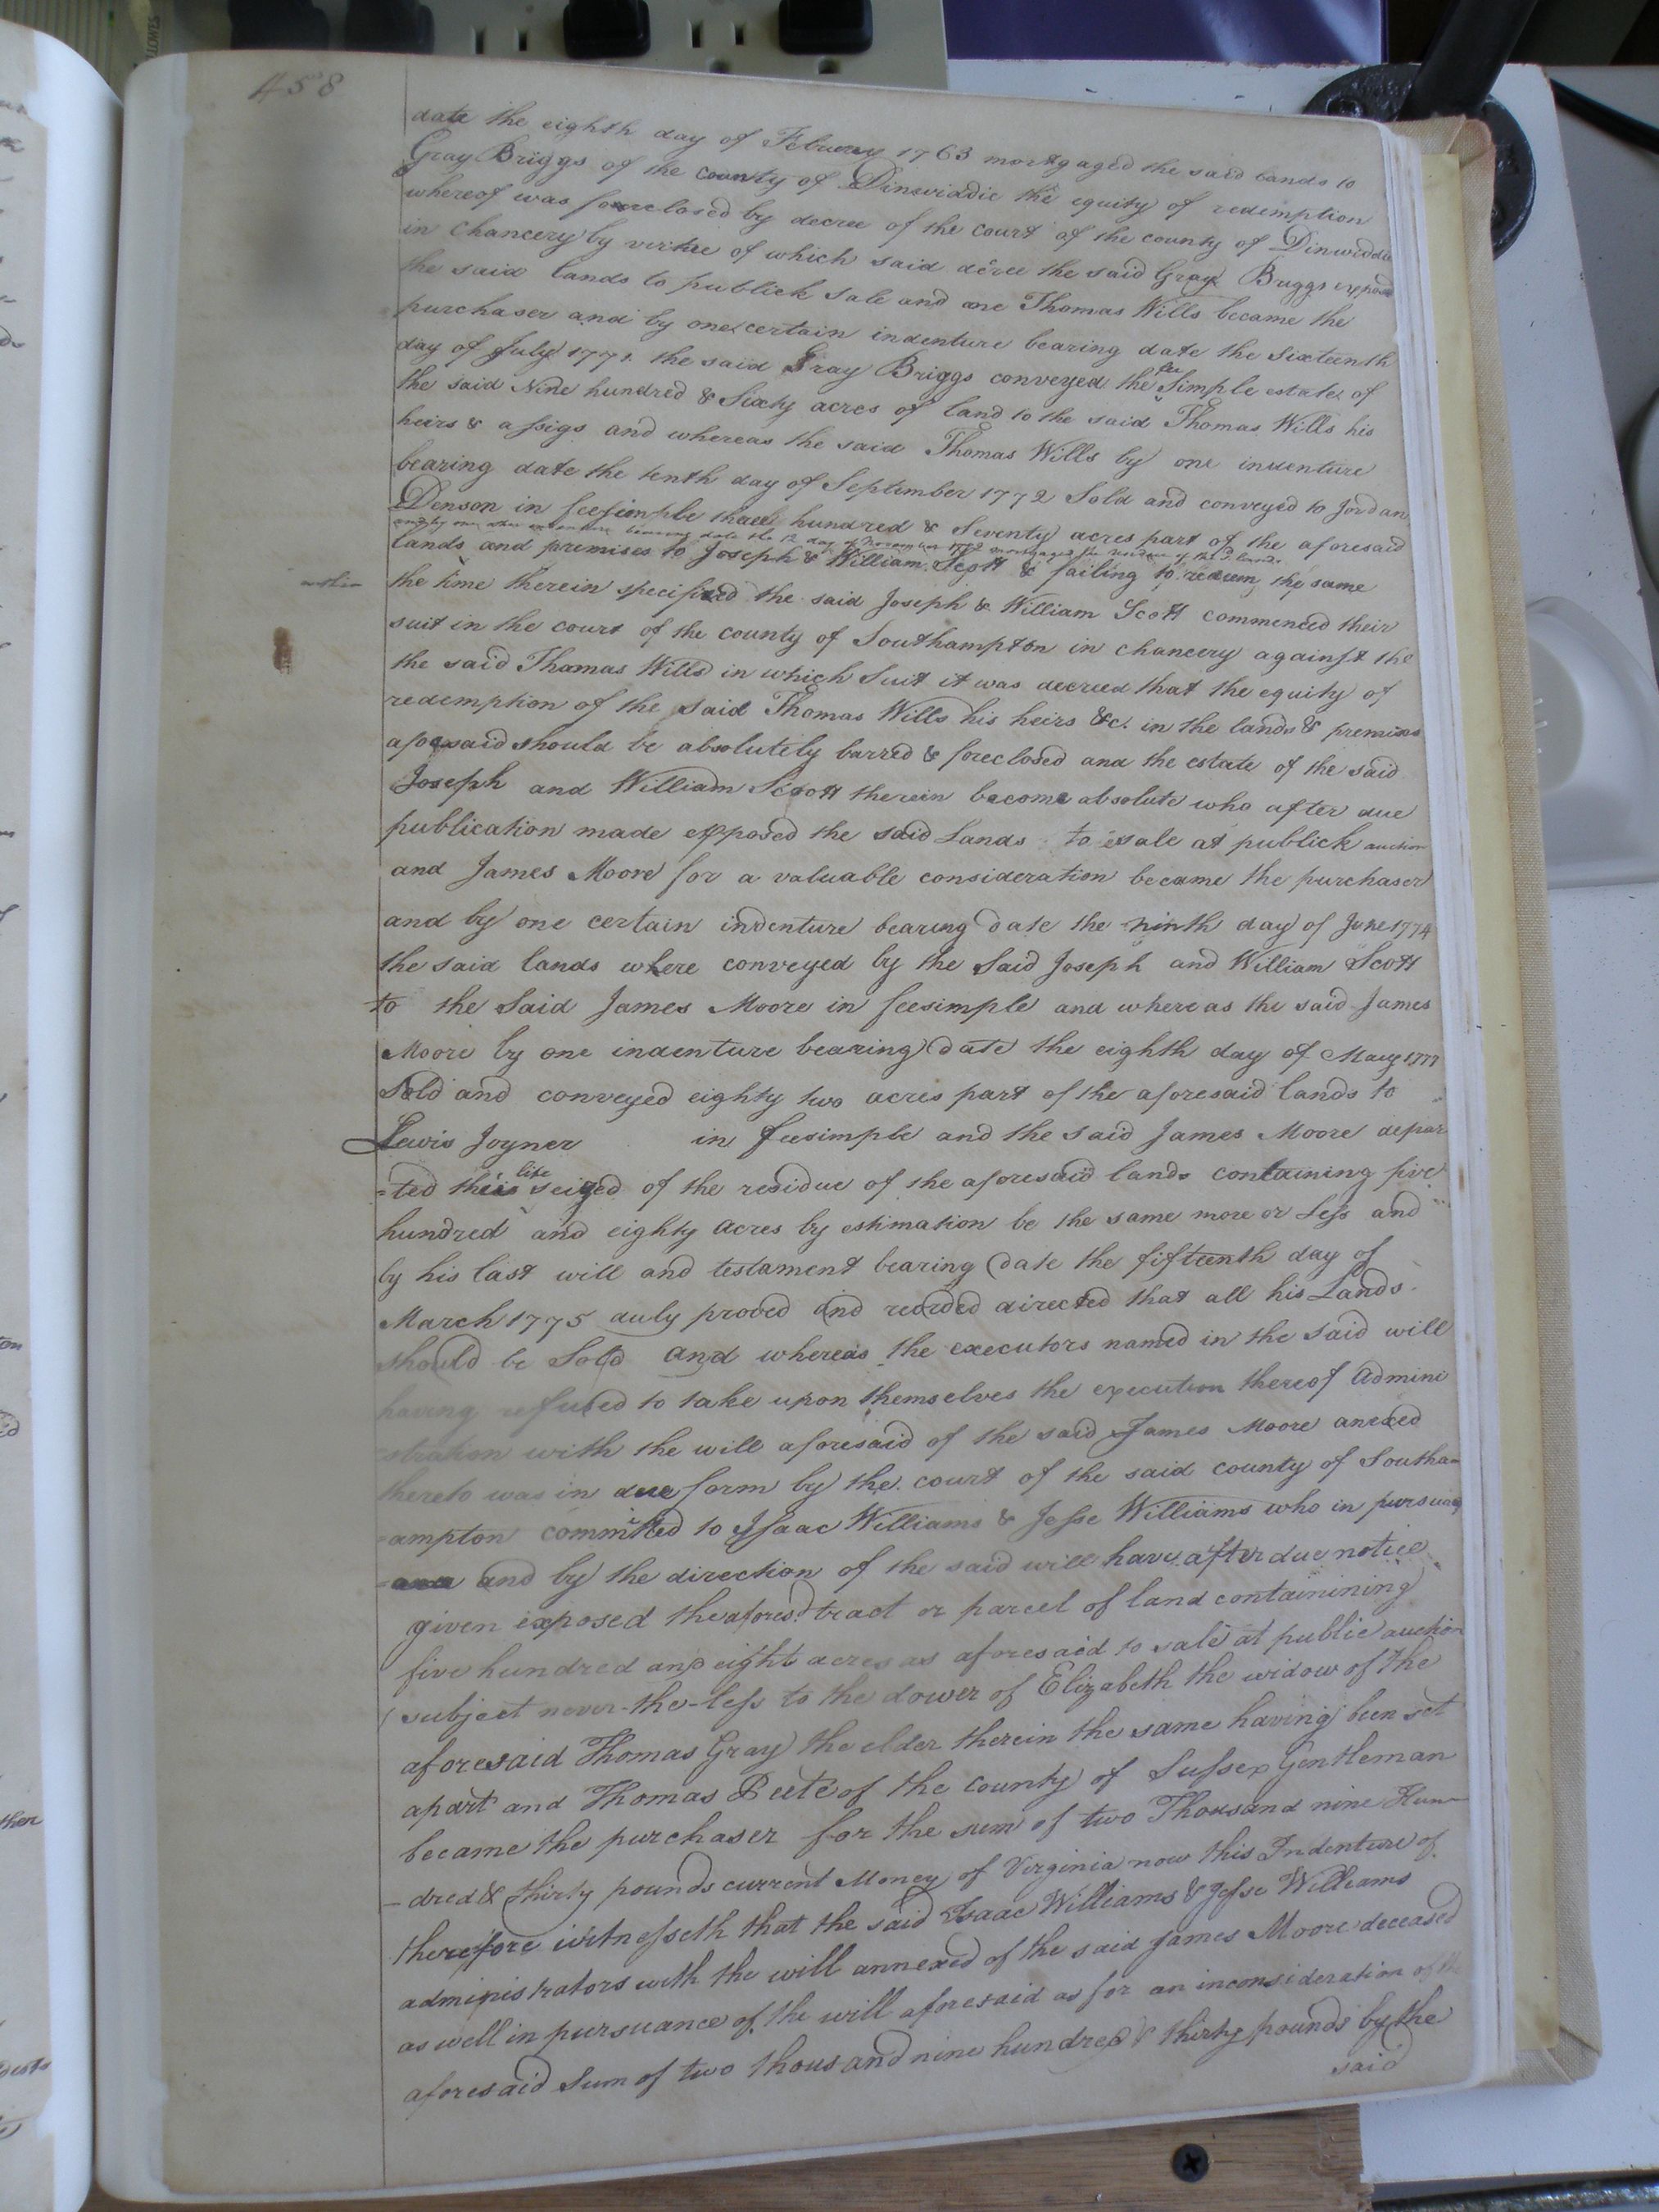 458
date the eighth day of Febuery 1763 mortgaged the said Lands to
Gray Briggs of the county of Dinwiddie the equity of redemption
whereof was foreclosed by decree of the court of the county of Dinwiddie
in Chancery by virtue of which said decree the said Gray Briggs exposed
the said lands to publick Sale and one Thomas Wills became the
purchaser and by one certain indenture bearing date the Sixteenth
day of July 1771. the said Gray Briggs conveyed the fee Simple estate of
the said Nine hundred & Sixty acres of land to the said Thomas Wills his
heirs & assigs and whereas the said Thomas Wills by one indenture
bearing date the tenth day of September 1772 Sold and conveyed to Jordan
Denson in feesimple three hundred & Seventy acres part of the aforesaid
and by one other indenture bearing date the 12 day of November 1772 mortgaged the residue of the sd. lands
lands and premises to Joseph & William Scott & failing to redeem the same
within
the time therein specified the said Joseph & William Scott commenced their
suit in the court of the county of Southampton in chancery against the
the said Thomas Wills in which Suit it was decreed that the equity of
redemption of the said Thomas Wills his heirs &c. in the lands & premises
aforesaid should be absolutely barred & foreclosed and the estate of the said
Joseph and William Scott therein become absolute who after due
publication made exposed the said Lands to sale at publick auction
and James Moore for a valuable consideration became the purchaser
and by one certain indenture bearing date the ninth day of June 1774
the said lands where conveyed by the Said Joseph and William Scott
to the Said James Moore in feesimple and whereas the said James
Moore by one indenture bearing date the eighth day of May 1777
Sold and conveyed eighty two acres part of the aforesaid lands to
Lewis Joyner in feesimple and the said James Moore depar
=ted this life seized of the residue of the aforesaid lands containing five
hundred and eighty acres by estimation be the same more or Less and
by his last will and testament bearing date the fifteenth day of
March 1775 duly proved and recorded directed that all his Lands
should be Sold and whereas the executors named in the said will
having refused to take upon themselves the execution thereof Admini
=stration with the will aforesaid of the said James Moore anexed
thereto was in due form by the court of the said county of Southa=
=ampton committed to Isaac Williams & Jesse Williams who in pursuan
and by the direction of the said will have after due notice
given exposed the aforesd. tract or parcel of land containining
five hundred and eight acres as aforesaid to sale at public auction
subject never-the-less to the dower of Elizabeth the widow of the
aforesaid Thomas Gray the elder therein the same having been set
apart and Thomas Peete of the county of Sussex Gentleman
became the purchaser for the sum of two Thousand nine Hun
-dred & thirty pounds current Money of Virginia now this Indenture of
therefore witnesseth that the said Isaac Williams & Jesse Williams
administrators with the will annexed of the said James Moore deceased
as well in pursuance of the will aforesaid as for an inconsideration of the
aforesaid Sum of two thousand nine hundred & thirty pounds by the
said